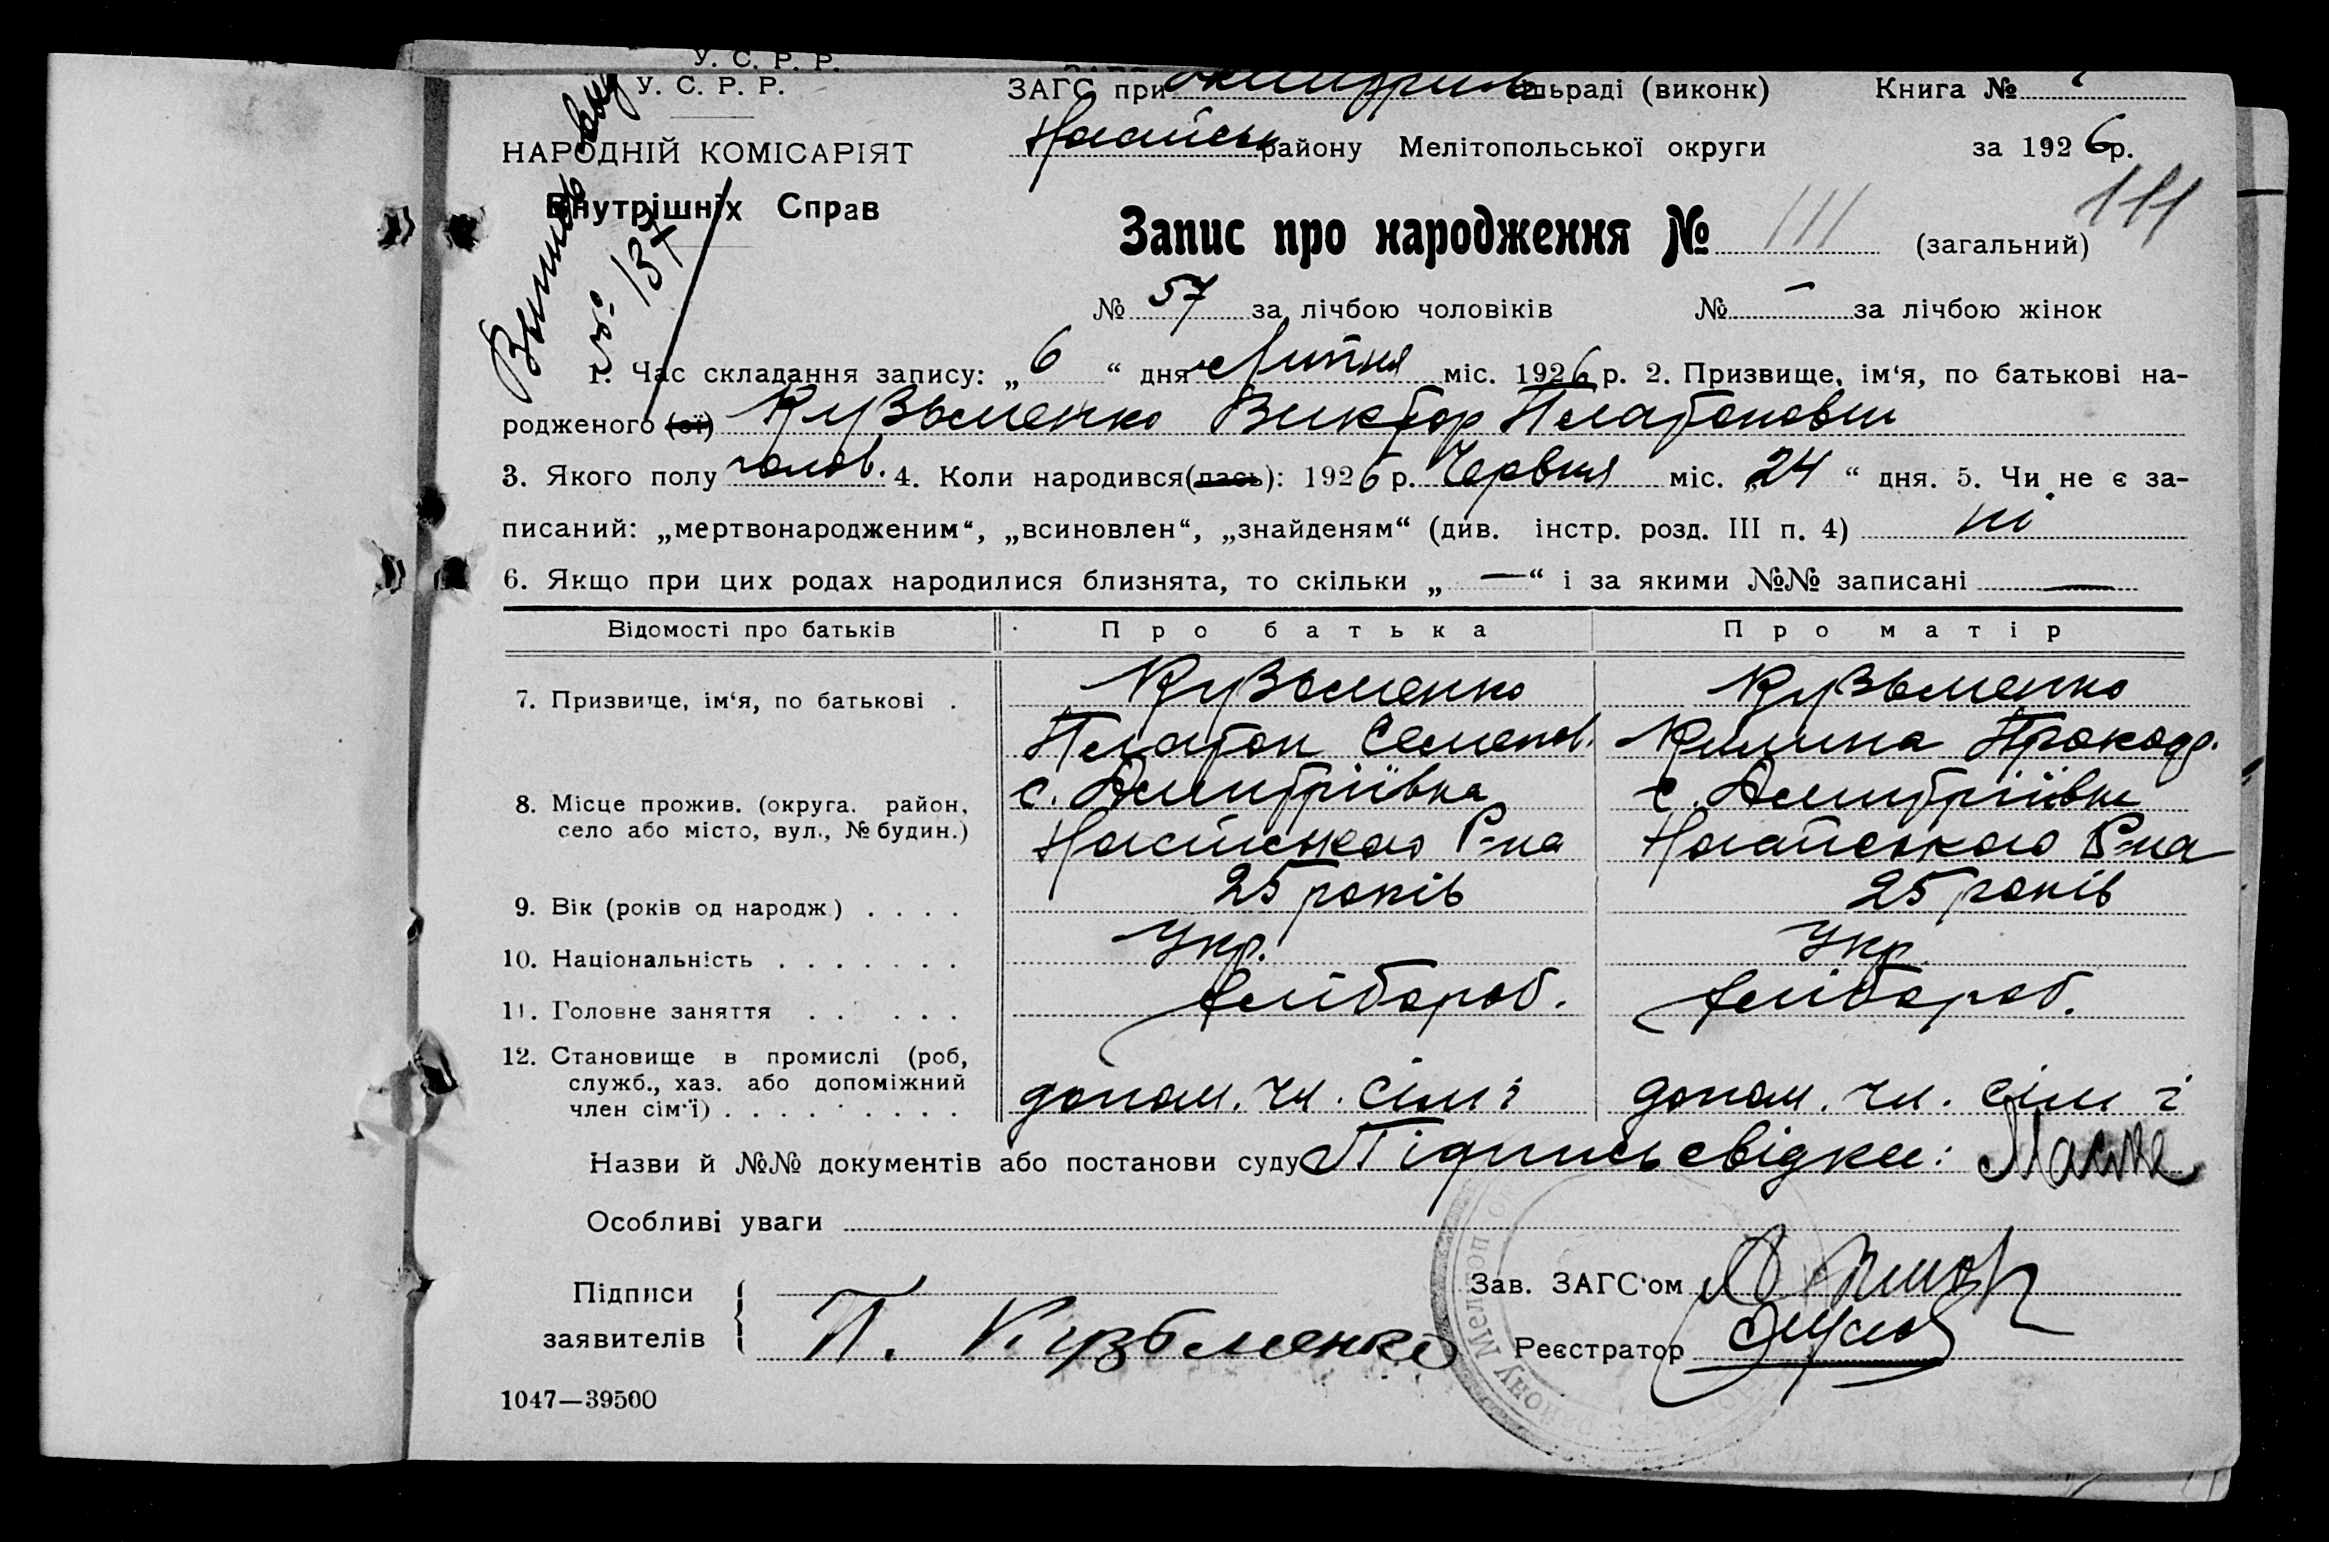 У. С. Р. Р.
У. С. Р. Р.
ЗАГС при сільраді (виконк) Книга №
НАРОДНІЙ КОМІСАРІЯТ
Ногайськ району Мелітопольської округи за 1926 р.
Внутрішніх Справ
137
Запис про народження № 111 (загальний) 111
№ 57 за лічбою чоловіків № – за лічбою жінок
1. Час складання запису: „ 6 “ дня Липня міс. 1926 р. 2. Призвище, ім‘я, по батькові на-
родженого (ої) Кузьменко Виктор Платонович
3. Якого полу чолов. 4. Коли народився(лась): 1926 р. Червня міс. „ 24 “ дня. 5. Чи не є за-
писаний: „мертвонародженим“, „всиновлен“, „знайденям“ (див. інстр. розд. III п. 4) ні
6. Якщо при цих родах народилися близнята, то скільки „ — “ і за якими №№ записані —
Відомості про батьків Про батька Про матір
7. Призвище, ім‘я, по батькові . Кузьменко Кузьменко
Платон Семенов. Килина Прокоф.
с. Дмитріївка с. Дмитріївка
8. Місце прожив. (округа. район,
село або місто, вул., № будин.)
Ногайського Р-на Ногайського Р-на
9. Вік (років од народж) . . . . 25 років 25 років
10. Національність . . . . . . . Укр. Укр.
11. Головне заняття . . . . . хлібороб. хлібороб.
12. Становище в промислі (роб,
служб., хаз. або допоміжний
член сім‘ї) . . . . . . . . . допом. чл. сімі допом. чл. сімі
Назви й №№ документів або постанови суду Підпись свідка:
Особливі уваги
Підписи
заявителів
П. Кузьменко
Зав. ЗАГС‘ом
Реєстратор
1047—39500